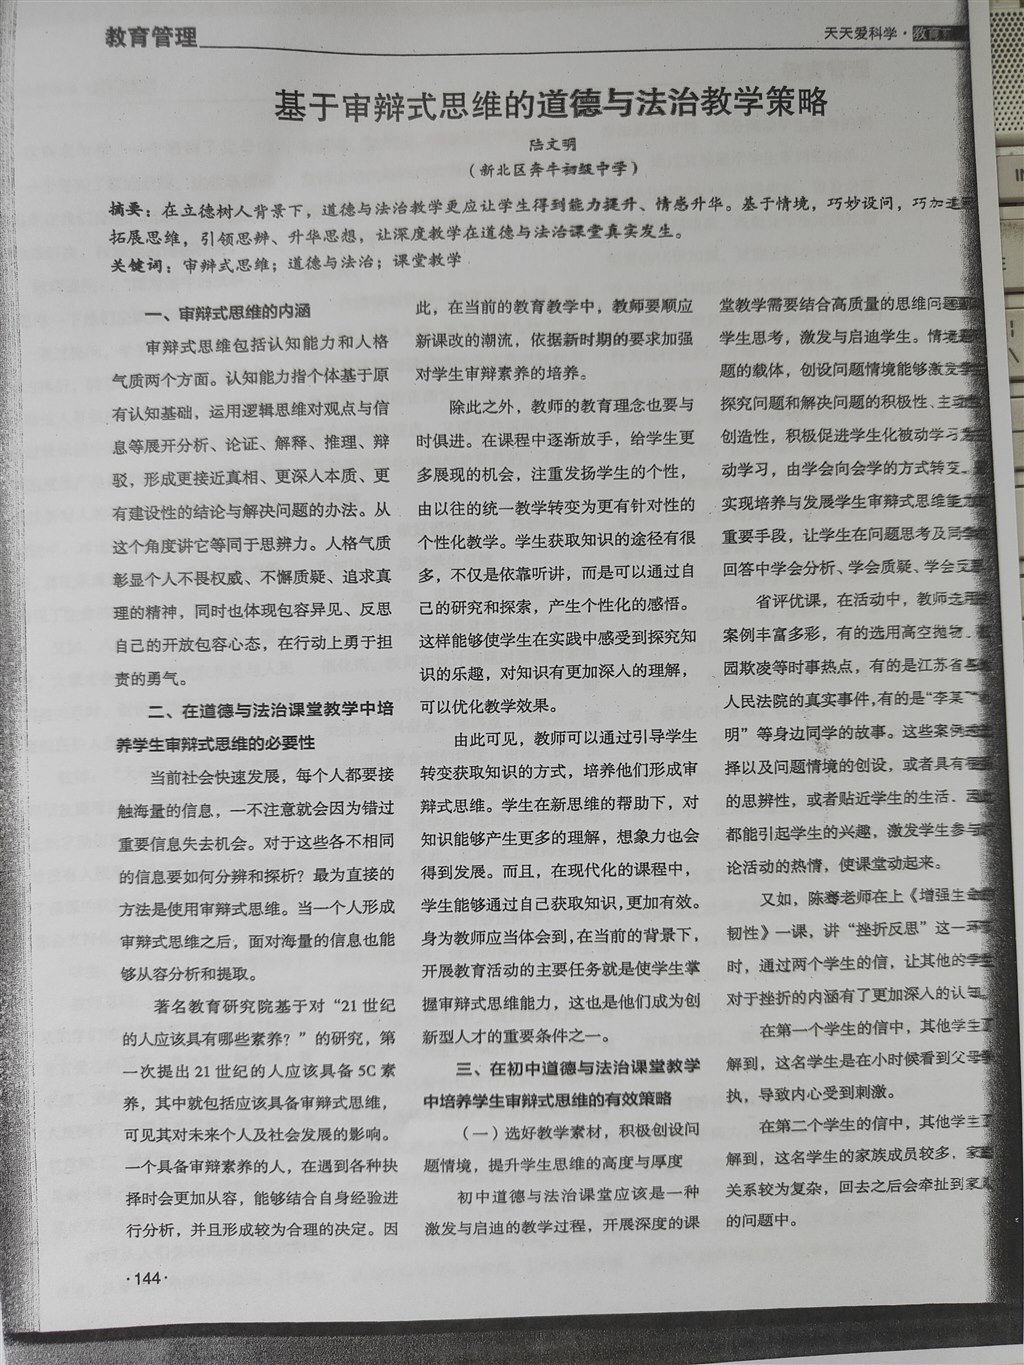 教育管理
天天爱科学·教育
基于审辩式思维的道德与法治教学策略
陆文明
（新北区奔牛初级中学）
摘要：在立德树人背景下，道德与法治教学更应让学生得到能力提升、情感升华。基于情境，巧妙设问，巧加
拓展思维，引领思辨、升华思想，让深度教学在道德与法治课堂真实发生。
关键词：审辩式思维；道德与法治；课堂教学
一、审辩式思维的内涵
审辩式思维包括认知能力和人格
气质两个方面。认知能力指个体基于原
有认知基础，运用逻辑思维对观点与信
息等展开分析、论证、解释、推理、辩
驳，形成更接近真相、更深入本质、更
有建设性的结论与解决问题的办法。从
这个角度讲它等同于思辨力。人格气质
彰显个人不畏权威、不懈质疑、追求真
理的精神，同时也体现包容异见、反思
自己的开放包容心态，在行动上勇于担
责的勇气。
二、在道德与法治课堂教学中培
养学生审辩式思维的必要性
当前社会快速发展，每个人都要接
触海量的信息，一不注意就会因为错过
重要信息失去机会。对于这些各不相同
的信息要如何分辨和探析？最为直接的
方法是使用审辩式思维。当一个人形成
审辩式思维之后，面对海量的信息也能
够从容分析和提取。
著名教育研究院基于对“21 世纪
的人应该具有哪些素养？”的研究，第
一次提出 21 世纪的人应该具备 5C 素
养，其中就包括应该具备审辩式思维，
可见其对未来个人及社会发展的影响。
一个具备审辩素养的人，在遇到各种抉
择时会更加从容，能够结合自身经验进
行分析，并且形成较为合理的决定。因
此，在当前的教育教学中，教师要顺应
新课改的潮流，依据新时期的要求加强
对学生审辩素养的培养。
除此之外，教师的教育理念也要与
时俱进。在课程中逐渐放手，给学生更
多展现的机会，注重发扬学生的个性，
由以往的统一教学转变为更有针对性的
个性化教学。学生获取知识的途径有很
多，不仅是依靠听讲，而是可以通过自
己的研究和探索，产生个性化的感悟。
这样能够使学生在实践中感受到探究知
识的乐趣，对知识有更加深入的理解，
可以优化教学效果。
由此可见，教师可以通过引导学生
转变获取知识的方式，培养他们形成审
辩式思维。学生在新思维的帮助下，对
知识能够产生更多的理解，想象力也会
得到发展。而且，在现代化的课程中，
学生能够通过自己获取知识，更加有效。
身为教师应当体会到，在当前的背景下，
开展教育活动的主要任务就是使学生掌
握审辩式思维能力，这也是他们成为创
新型人才的重要条件之一。
三、在初中道德与法治课堂教学
中培养学生审辩式思维的有效策略
（一）选好教学素材，积极创设问
题情境，提升学生思维的高度与厚度
初中道德与法治课堂应该是一种
激发与启迪的教学过程，开展深度的课
堂教学需要结合高质量的思维问题
学生思考，激发与启迪学生。情境是
题的载体，创设问题情境能够激发学
探究问题和解决问题的积极性、主动
创造性，积极促进学生化被动学习为
动学习，由学会向会学的方式转变。
实现培养与发展学生审辩式思维能力
重要手段，让学生在问题思考及同学
回答中学会分析、学会质疑、学会
省评优课，在活动中，教师选用
案例丰富多彩，有的选用高空抛物、
园欺凌等时事热点，有的是江苏省
人民法院的真实事件，有的是“李某”
明”等身边同学的故事。这些案例
择以及问题情境的创设，或者具有
的思辨性，或者贴近学生的生活，
都能引起学生的兴趣，激发学生参与
论活动的热情，使课堂动起来。
又如，陈骞老师在上《增强生命
韧性》一课，讲“挫折反思”这一环
时，通过两个学生的信，让其他的学生
对于挫折的内涵有了更加深入的认知。
在第一个学生的信中，其他学生了
解到，这名学生是在小时候看到父母
执，导致内心受到刺激。
在第二个学生的信中，其他学生了
解到，这名学生的家族成员较多，家
关系较为复杂，回去之后会牵扯到家
的问题中。
·144·